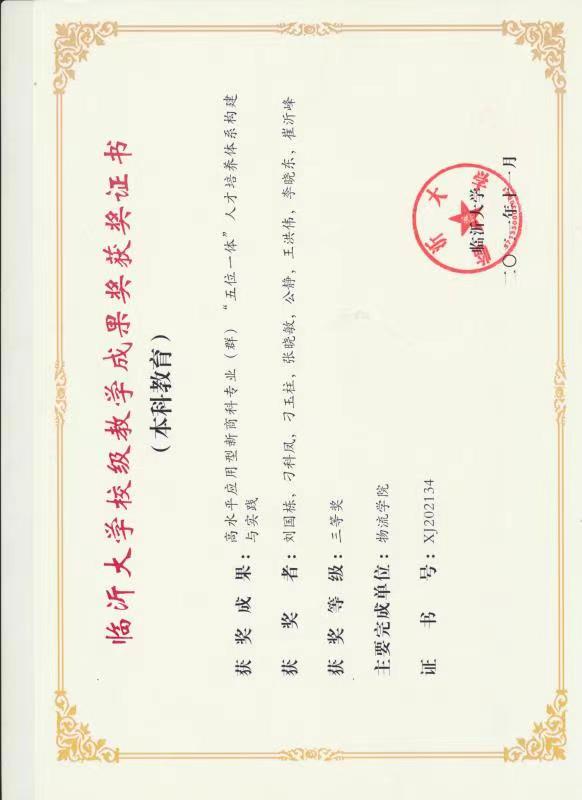 临沂大学校级教学成果奖获奖证书
（本科教育）
获奖成果：高水平应用型新商科专业（群）“五位一体”人才培养体系构建
与实践
获奖者：刘国栋，刁科凤，刁玉柱，张晓敏，公静，王洪伟，李晓东，崔沂峰
获奖等级：三等奖
主要完成单位：物流学院
证书号：XJ202134
临沂大学
二〇二一年十一月